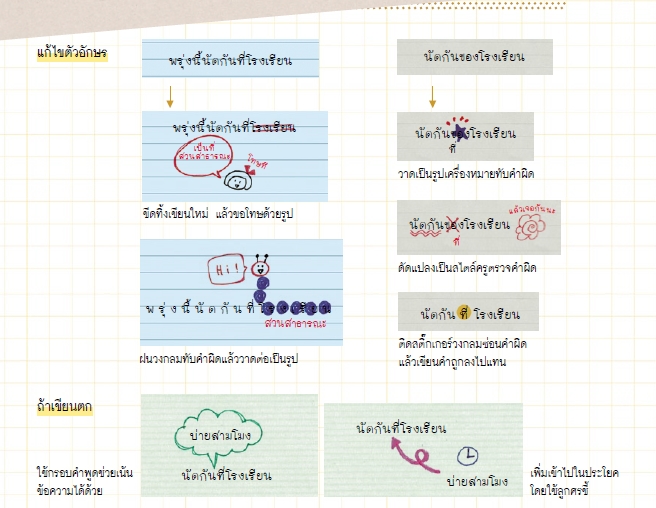 แก้ไขตัวอักษร
พรุ่งนี้นัดกันที่โรงเรียน
พรุ่งนี้นัดกันที่โรงเรียน
เป็นที่
สวนสาธารณะ
โทษที
ขีดทิ้งเขียนใหม่ แล้วขอโทษด้วยรูป
Hi!
พรุ่งนี้นัดกันที่โรงเรียน
สวนสาธารณะ
ฝนวงกลมทับคำผิดแล้ววาดต่อเป็นรูป
นัดกันของโรงเรียน
นัดกันของโรงเรียน
ที่
วาดเป็นรูปเครื่องหมายทับคำผิด
แล้วเจอกันนะ
นัดกันของโรงเรียน
ที่
ดัดแปลงเป็นสไตล์ครูตรวจคำผิด
นัดกัน ที่ โรงเรียน
ติดสติ๊กเกอร์วงกลมซ่อนคำผิด
แล้วเขียนคำถูกลงไปแทน
ถ้าเขียนตก
บ่ายสามโมง
นัดกันที่โรงเรียน
ใช้กรอบคำพูดช่วยเน้น
ข้อความได้ด้วย
นัดกันที่โรงเรียน
บ่ายสามโมง
เพิ่มเข้าไปในประโยค
โดยใช้ลูกศรชี้